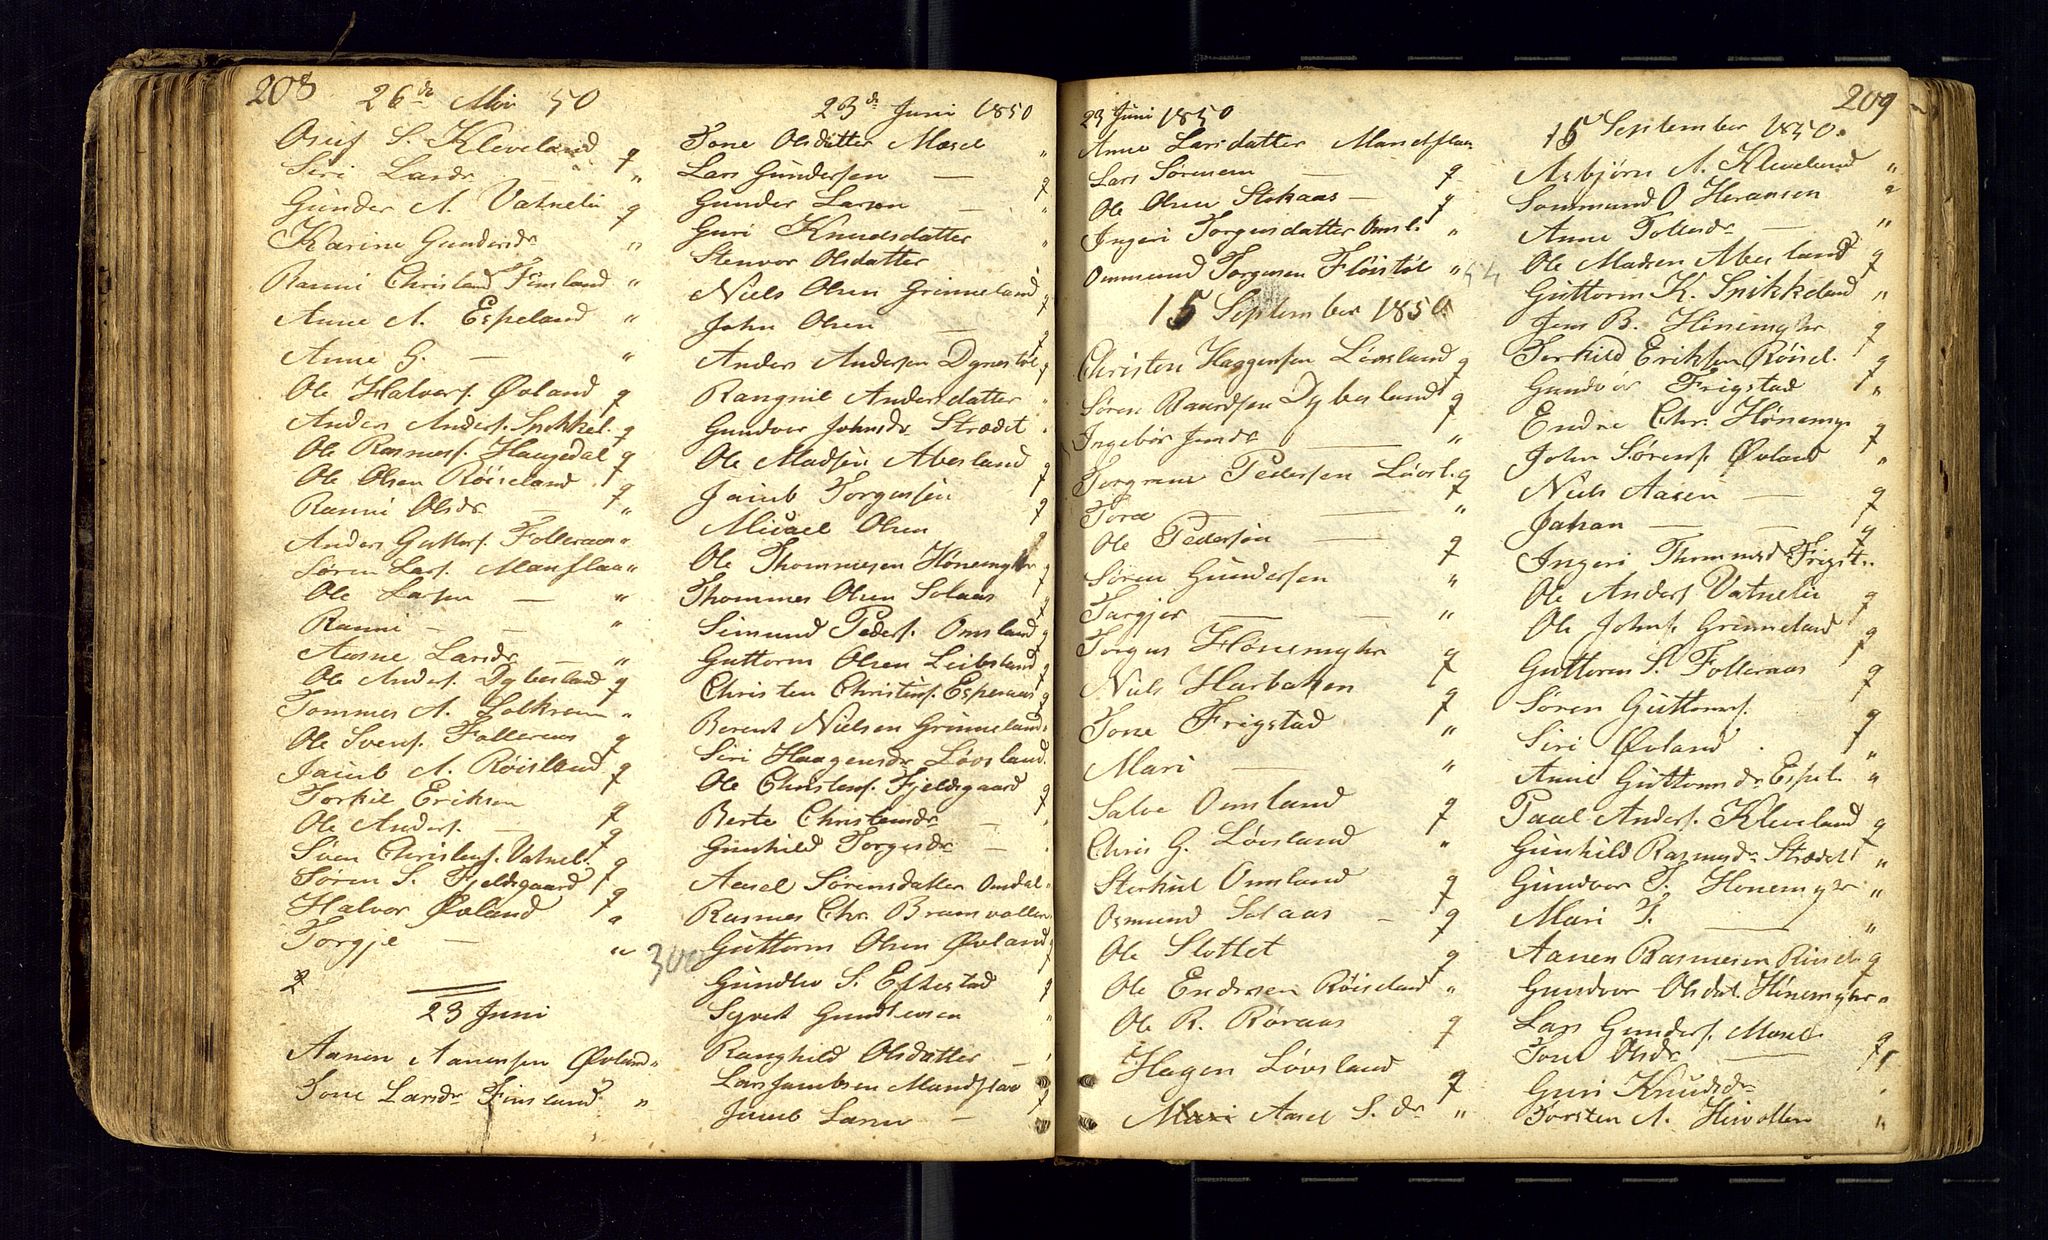 208
26de Mai 50
Osuf S. Kleveland g
Siri Larsdr — "
Gunder A. Vatnelie g
Karine Gundersdr "
Ranni Christend Finsland "
Anne A. Espeland "
Anne G. — "
Ole Halvors. Øvland g
Anders Anders. Spikkel. g
Ole Rasmus. Haugedal g
Ole Olsen Røiseland g
Ranni Olsdr — "
Anders Guttors. Folleraas "
Søren Lars. Manflaa "
Ole Larsen — "
Ranni — — "
Aasne Larsdr — "
Ole Anders. Dybesland g
Tommes A. "
Ole Svens. Folleraas g
Jacob A. Røisland g
Torkil Eriksen g
Ole Anders. — g
Sven Christens. Vatnel. g
Søren S. Fjeldsgaard g
Halvor Øvland "
Torgje — "
2
23 Juni
Aanen Aanensen Øvland "
Tone Larsdr Finsland "
23de Juni 1850
Tone Olsdatter Mæsel "
Lars Gundersen — g
Gunder Larsen — "
Guri Knudsdatter "
Stenvor Olsdatter
Niels Olsen Grinneland g
John Olsen — g
Anders Andersen Dynestøl g
Rangnil Andersdatter "
Gundvor Johnsdr Strædet "
Ole Madsen Abesland g
Jacob Torgersen g
Micael Olsen g
Ole Thommesen Hønemyhr g
Thommes Olsen Solaas g
Simund Peders. Omsland g
Guttorm Olsen Leibsland g
Christen Christens. Esperaas g
Berent Nielsen Grinneland "
Siri Haagensdr Løvsland
Ole Christens. Fjeldsgaard g
Berte Christensdr — "
Gunhild Torgusdr — "
Aasel Sørensdatter Omdal "
Rasmus Chr. Bramvollen
300 Guttorm Olsen Øvland
Gundlev S. Eftestad g
Syvert Gundlevsen "
Ranghild Olsdatter — "
Lars Jacobsen Mandflaa g
Jacob Larsen —
23 Juni 1850
Anne Larsdatter Mandflaa
Lars Sørensen — g
Ole Olsen Stokaas — g
Ingeri Torgersdatter Omsl. "
Ommund Torgersen Fløistøl " 54
15 September 1850
Christen Haggensen Løvsland g
Søren Baardsen Dybesland g
Ingebør Jensdr — "
Torgrim Pedersen Løvsl. g
Tore — — "
Ole Pedersen — g
Søren Gundersen "
Targjer — — "
Torgus Hønemyhr g
Niels Harbakken g
Tone Frigstad "
Mari — "
Salve Omsland g
Chris G. Løvsland "
Sterkul Omsland g
Osmund Solaas — g
Ole Slottet g
Ole Endresen Røiseland "
Ole R. Røraas g
Hagen Løvsland g
Mari Aasel S. dr "
209
15 September 1850.
Asbjørn A. Kleveland "
Sommund O Heransen g
Anne Tollesdr — "
Ole Madsen Abesland g
Guttorm K. Spikkeland "
Jens B. Hønemyhr g
Torkild Eriksen Røisel. g
Gundvor Frigstad "
Endre Chr. Hønemy g
John Sørens. Øvland "
Niels Aasen — g
Johan — — g
Ingeri Thommesd Frigst. "
Ole Anders Vatnelie g
Ole Johns. Grinneland g
Guttorm S. Folleraas g
Søren Guttorms. g
Siri Øvland "
Anne Guttormsdr Espel. "
Paul Anders. Kleveland g
Gunhild Rasmusdr Strædet "
Gundvor T. Hønemyhr "
Mari T. — "
Aanen Rasmusen Røisel g
Gundvor Olsdat. Hønemyhr "
Lars Gunders. Mæsel g
Tone Olsdr —
Guri Knudsdr "
Torsten A. Heivollen "